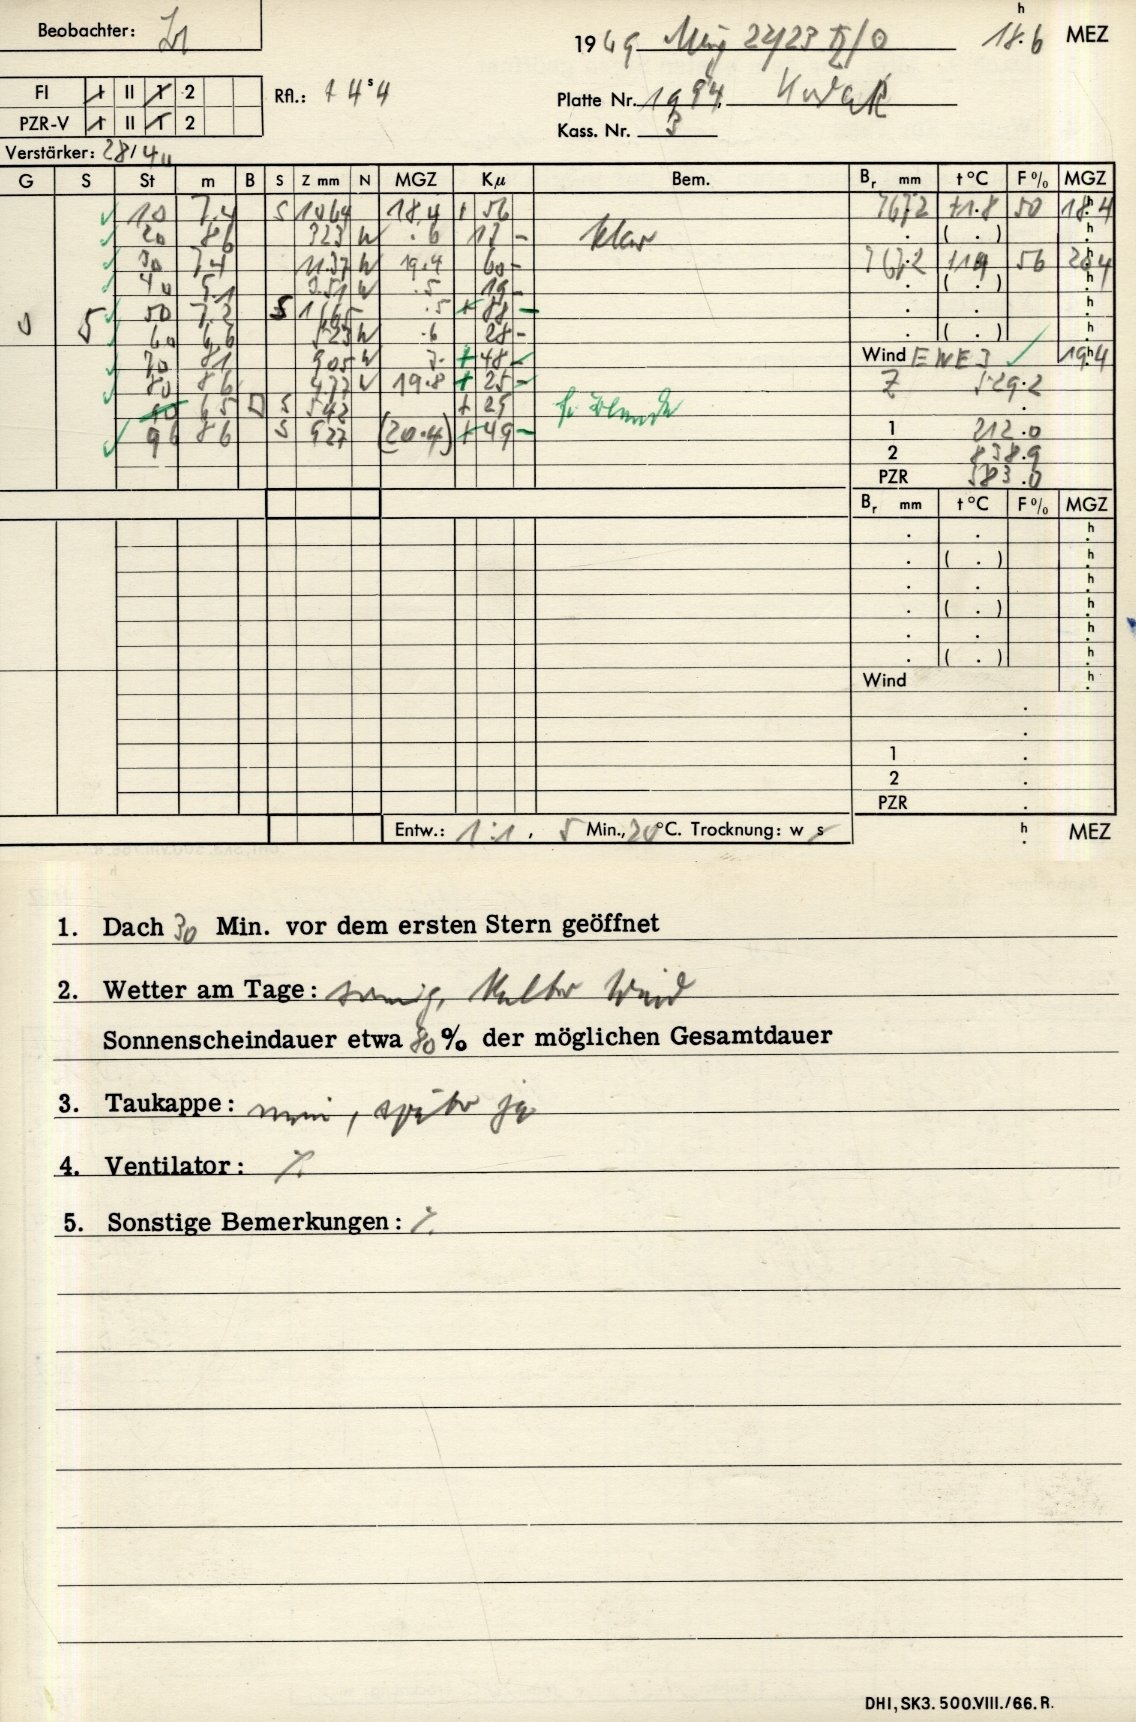 h
Beobachter:
1969 März 22/23 18.6 MEZ
FI I II 1 2 Rfl.: + 4 s 4
Platte Nr. 1994. Kodak
PZR-V I II 1 2
Kass. Nr. 3
Verstärker: 28/4
G S St m B S Z mm N MGZ Kμ Bem. Br mm t °C F % MGZ
10 7.4 S 1064 18.4 + 56 767.2 +1.8 50 18.4
20 86 323 W .6 13 - klar . ( . ) h
30 7.4 1137 W 19.4 60 - 767.2 56 20.4
40 9.1 351 W .5 19 - . ( . ) h
50 7.2 S 1665 .5 + 88 - . . h
0 5 60 6.6 523 W .6 28 - . ( . ) h
70 81 905 W 7. + 48 - Wind ENE 3 19.4
80 86 477 W 19.8 + 25 - Z 529.2
65 S 542 + 29
96 86 S 927 (20.4) + 49 - 1 212.0
2 838.9
PZR 583.0
Br mm t °C F % MGZ
. . h
. ( . ) h
. . h
. ( . ) h
. . h
. ( . ) h
Wind h
.
.
1 .
2 .
PZR .
Entw.: 1:1, 5 Min., 20 °C. Trocknung: w s h MEZ
1. Dach 30 Min. vor dem ersten Stern geöffnet
2. Wetter am Tage: sonnig, kalter Wind
Sonnenscheindauer etwa 80 % der möglichen Gesamtdauer
3. Taukappe: nein, später ja
4. Ventilator: ⁒
5. Sonstige Bemerkungen: ⁒
DHI, SK3. 500.VIII./66. R.